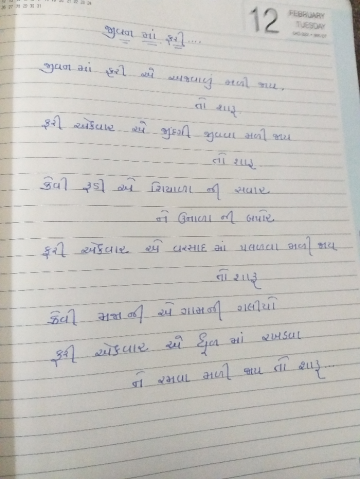 12
FEBRUARY
TUESDAY
જીવન માં ફરી...
જીવન માં ફરી એ અજવાળું મળી જાય
તો સારૂ
ફરી એકવાર એ જીંદગી જીવવા મળી જાય
તો સારૂ
કેવી રૂડી એ શિયાળા ની સવાર
ને ઉનાળા ની બપોર
ફરી એકવાર એ વરસાદ માં પલળવા મળી જાય
તો સારૂ
કેવી મજાની એ ગામની ગલીયો
ફરી એકવાર એ ધૂળ માં રાખડવા
ને રમવા મળી જાય તો સારૂ...